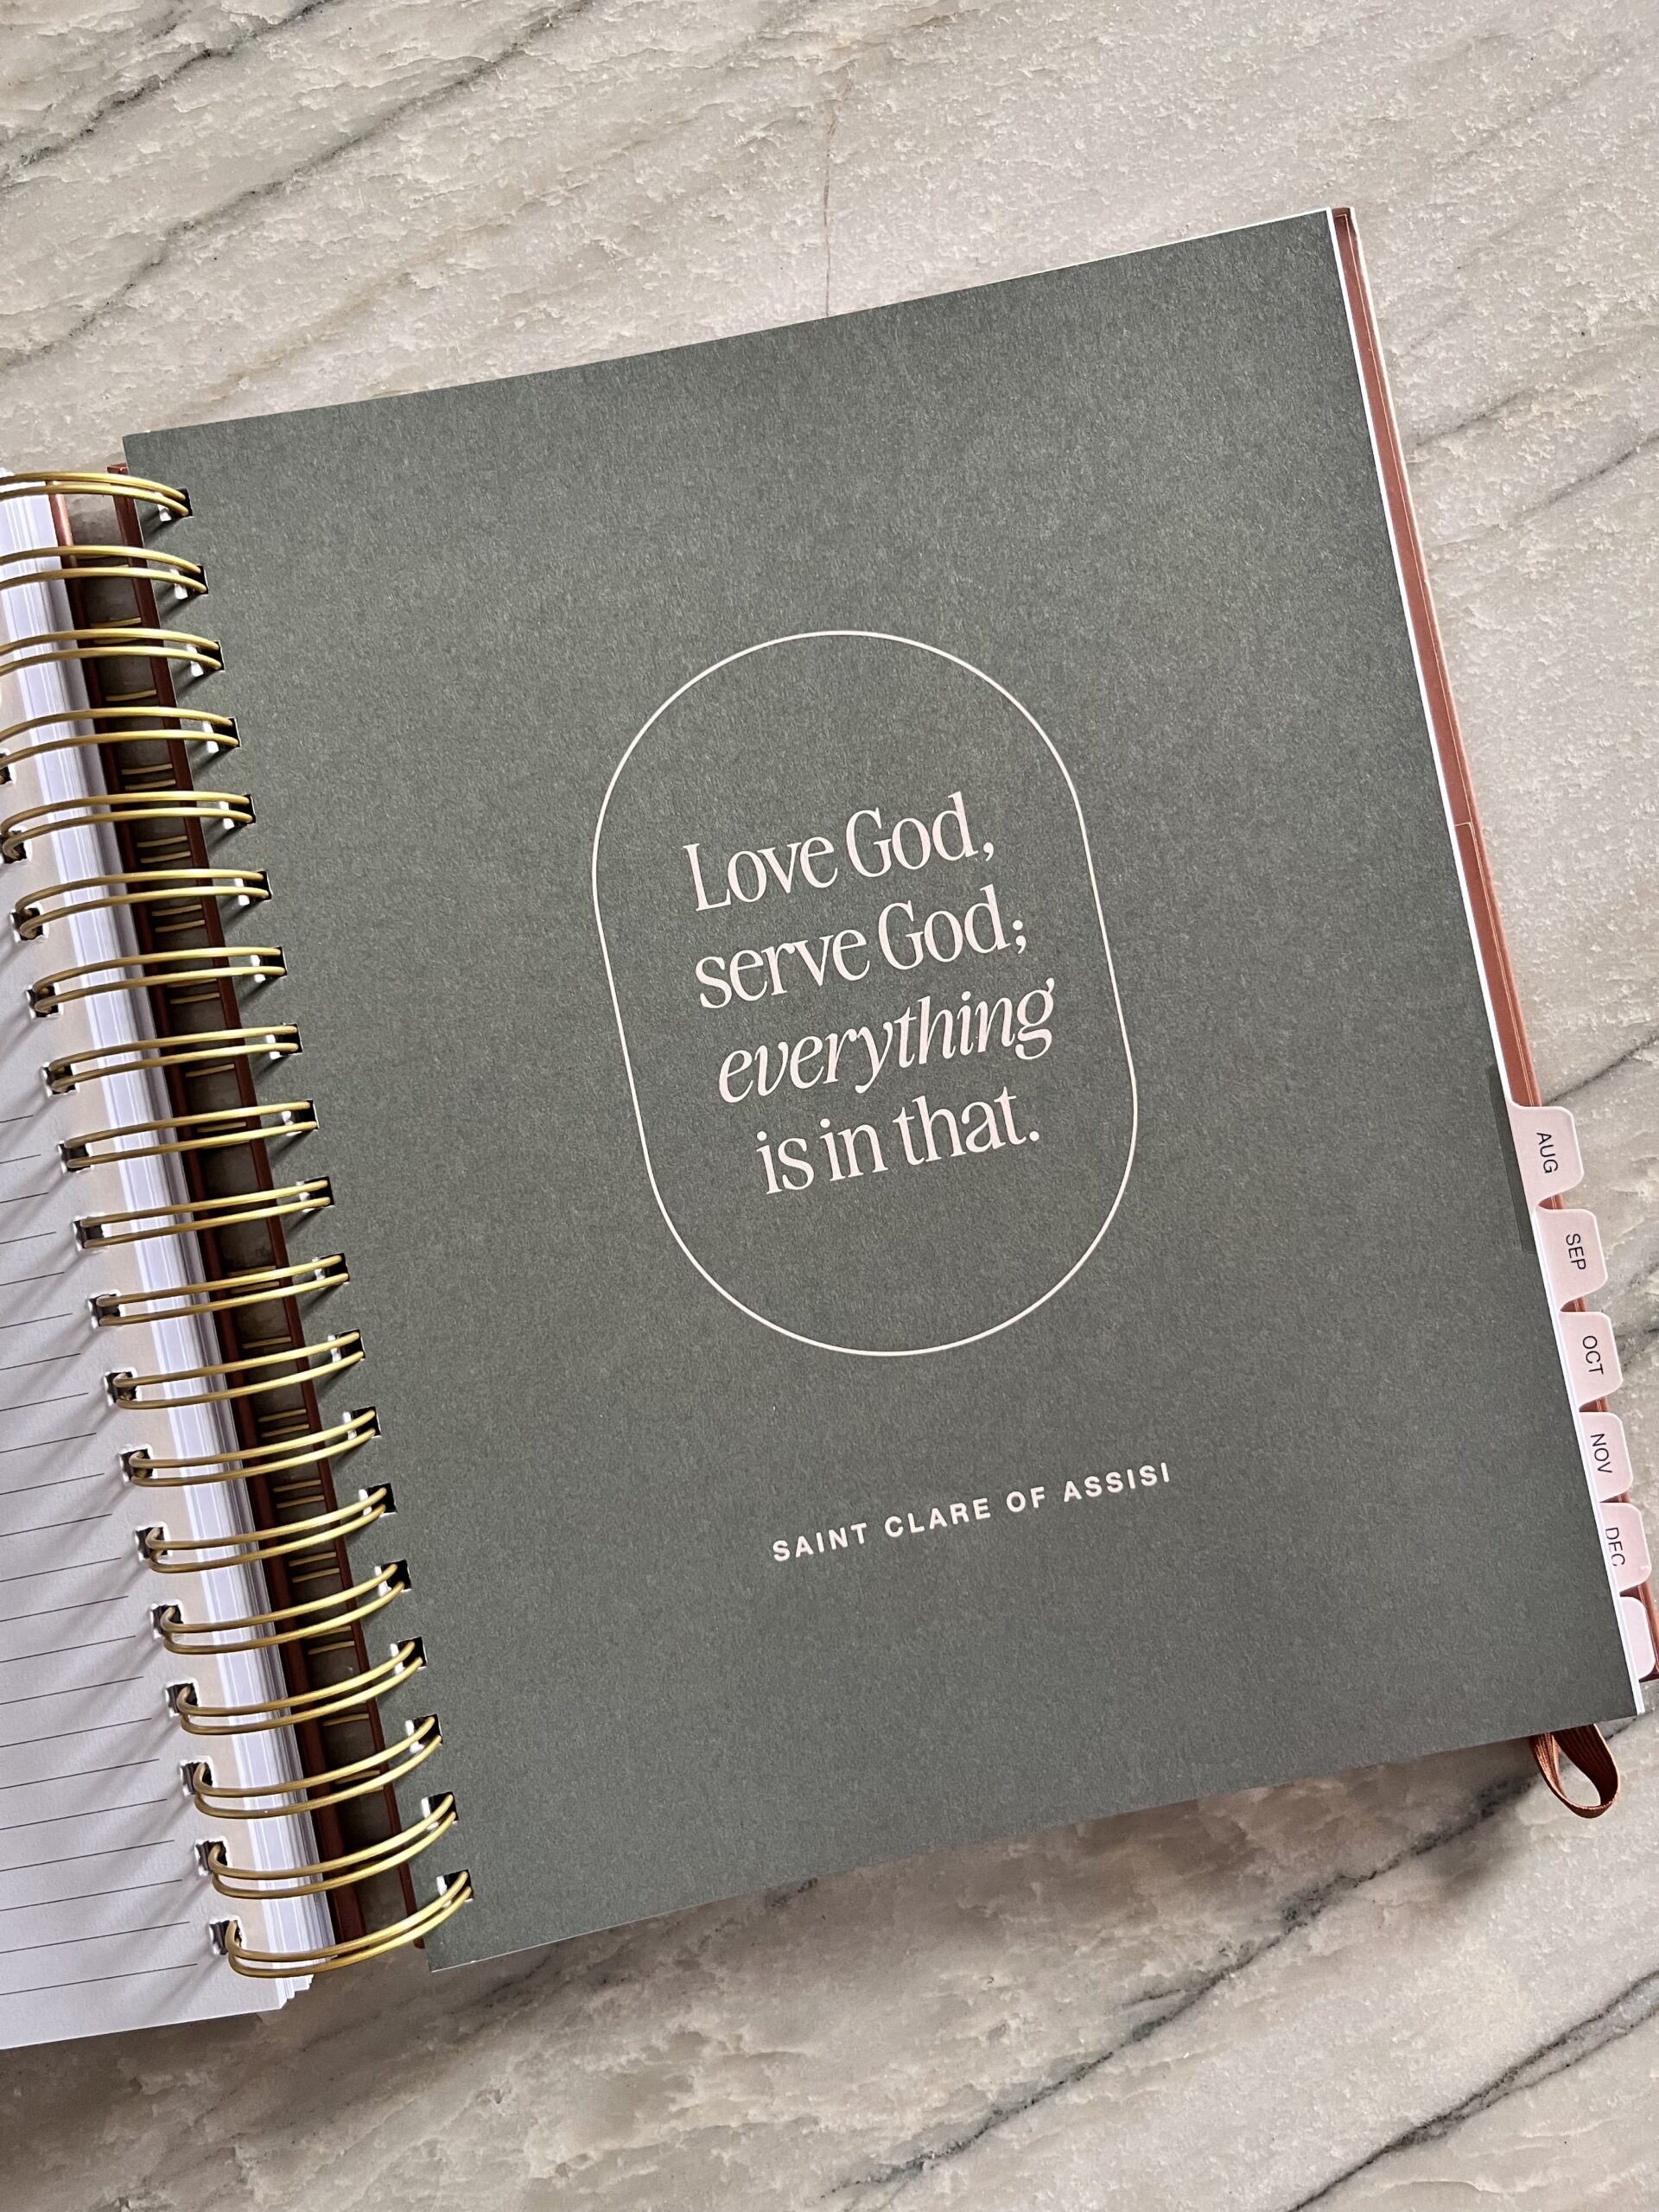 Love God,
serve God;
everything
is in that.
SAINT CLARE OF ASSISI
AUG
SEP
OCT
NOV
DEC